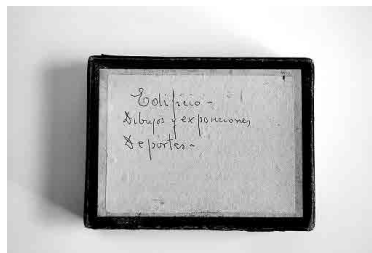 Edificio -
Dibujos y exposiciones
Deportes -